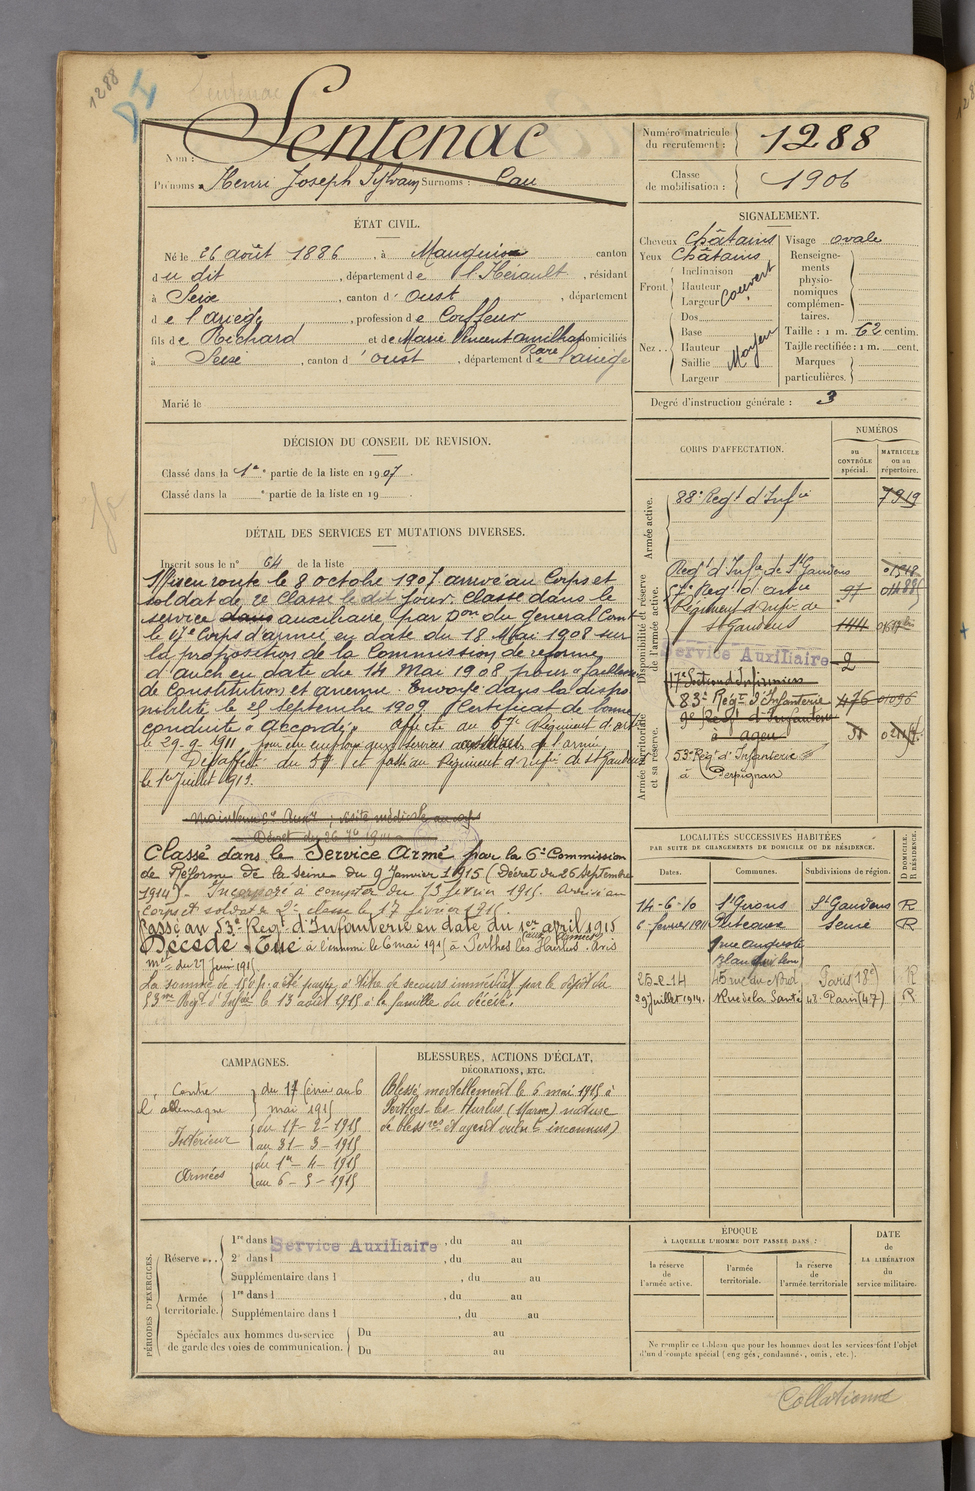 1288
Sentenac
Nom : Sentenac
Prénoms : Henri Joseph Sylvain Surnoms : Cau
Numéro matricule du recrutement : 1288
Classe de mobilisation : 1906
ÉTAT CIVIL.
Né le 26 août 1886, à Mauguio canton
du dit, département de l'Hérault, résidant
à Seix, canton d'Oust, département
de l'ariège, profession de Coiffeur
fils de Richard et de Marie domiciliés
à Seix, canton d'oust, département de l'ariège
Marié le
SIGNALEMENT.
Cheveux Châtains Visage ovale
Yeux Châtains Renseigne-
ments
physio-
nomiques
complémen-
taires.
Front. Inclinaison
Hauteur
Largeur
Couvert
Nez. . Dos
Base
Hauteur
Saillie
Largeur
Moyen
Taille : 1 m. 62 centim.
Taille rectifiée : 1 m. cent.
Marques
particulières.
Degré d'instruction générale : 3
DÉCISION DU CONSEIL DE REVISION.
Classé dans la 1re partie de la liste en 1907
Classé dans la e partie de la liste en 19
DÉTAIL DES SERVICES ET MUTATIONS DIVERSES.
Inscrit sous le n° 64 de la liste
Mis en route le 8 octobre 1907 arrivé au Corps et
soldat de 2e Classe le dit jour. Classé dans le
service dans auxiliaire par Don du général Comt
le 17e Corps d'armée en date du 18 Mai 1908 sur
la proposition de la Commission de réforme
d'auch en date du 14 Mai 1908 pour "faiblesse
de Constitution et anémie. Envoyé dans la dispo
nibilité le 25 septembre 1909. Certificat de bonne
conduite "Accordé". Affecté au 57e Régiment d'art
le 29-9-1911 pour être employé aux services auxiliaires de l'armée
Désaffecté du 57 et passé au Régiment d'Infie de St Gaudens
le 1er Juillet 1913.
Maintenu Sce Auxre ; visite médicale au corps
Décret du 26 7bre 1914
Classé dans le Service Armé par la 6e Commission
de Réforme de la Seine du 9 Janvier 1915 (Décret du 26 Septembre
1914). Incorporé à compter du 13 février 1915. Arrivé au
Corps et soldat de 2e classe le 17 février 1915.
Passé au 53e Régt d'Infanterie en date du 1er avril 1915
(aux Armées)
Décédé "Tué à l'ennemi le 6 mai 1915 à Perthes les Hurlus. Avis
mel du 27 Juin 1915
La somme de 150 f. a été payée à titre de secours immédiat par le dépôt du
53me Régt d'Infie le 13 août 1915 à la famille du décédé.
CORPS D'AFFECTATION.
NUMÉROS
au
CONTRÔLE
spécial.
MATRICULE
ou au
répertoire.
Armée active.
88e Regt d'Infie 7919
Disponibilité et réserve
de l'armée active.
Regt d'Infie de St Gaudens
57e Regt d'artie 97
Régiment d'Infie de
St Gaudens 144
Service Auxiliaire 2
17e Section d'Infirmiers
Armée territoriale
et sa réserve.
83e Régt d'Infanterie 476 01096
9e Regt d'Infanterie
à agen
53e Régt d'Infanterie
à Perpignan
LOCALITÉS SUCCESSIVES HABITÉES
PAR SUITE DE CHANGEMENTS DE DOMICILE OU DE RÉSIDENCE.
D DOMICILE.
R RÉSIDENCE.
Dates. Communes. Subdivisions de région.
14-6-10 St Girons St Gaudens R
6 février 1911 Puteaux Seine R
9 rue auguste
Blanqui
25-2-14 45 rue du Nord Paris (18e) R
29 Juillet 1914. Rue de la Santé 48 Paris R
CAMPAGNES.
Contre
l'allemagne
du 17 février au 6
mai 1915
Intérieur
du 17-2-1915
au 31-3-1915
Armées
du 1er-4-1915
au 6-5-1915
BLESSURES, ACTIONS D'ÉCLAT,
DÉCORATIONS, ETC.
Blessé mortellement le 6 mai 1915 à
Perthes-les-Hurlus (Marne) nature
de blessres et agent vulnt inconnus)
PÉRIODES D'EXERCICES.
Réserve. . .
1re dans l , du au
Service Auxiliaire
2e dans l , du au
Supplémentaire dans l , du au
Armée
territoriale.
1re dans l , du au
Supplémentaire dans l , du au
Spéciales aux hommes du service
de garde des voies de communication.
Du au
Du au
ÉPOQUE
À LAQUELLE L'HOMME DOIT PASSER DANS :
la réserve
de
l'armée active.
l'armée
territoriale.
la réserve
de
l'armée territoriale
DATE
de
LA LIBÉRATION
du
service militaire.
Ne remplir ce tableau que pour les hommes dont les services font l'objet
d'un décompte spécial (engagés, condamnés, omis, etc.).
Collationné